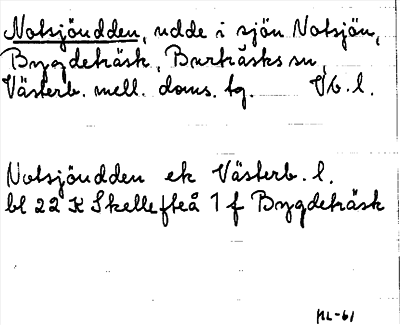 Notsjöudden, udde i sjön Notsjön,
Bygdeträsk, Burträsks sn,
Västerb. mell. doms. tg. Vb. l.
Notsjöudden ek Västerb. l.
bl 22 K Skellefteå 1 f Bygdeträsk
HL-61